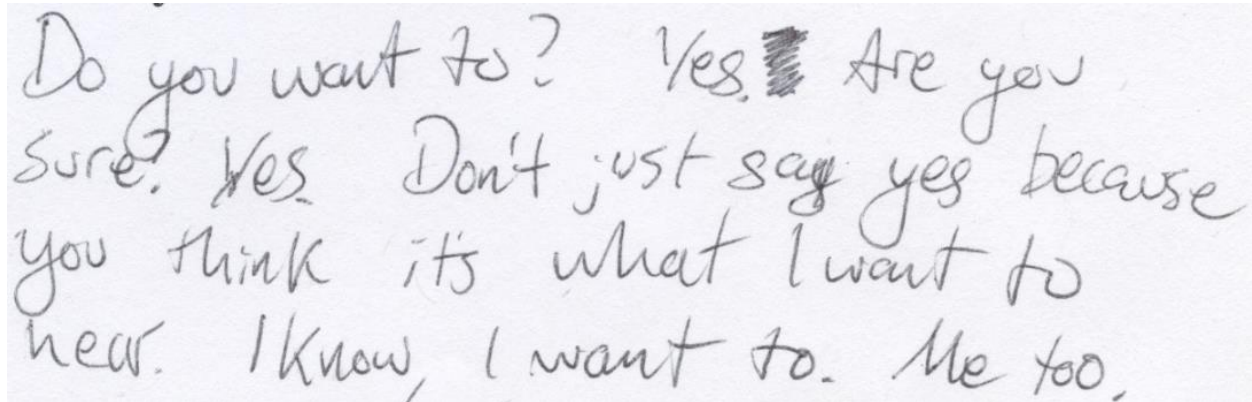 Do you want to? Yes. Are you
sure? Yes. Don't just say yes because
you think it's what I want to
hear. I know, I want to. Me too.